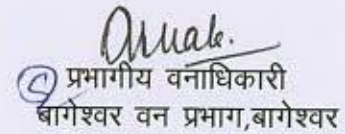 प्रभागीय वनाधिकारी
बागेश्वर वन प्रभाग,बागेश्वर